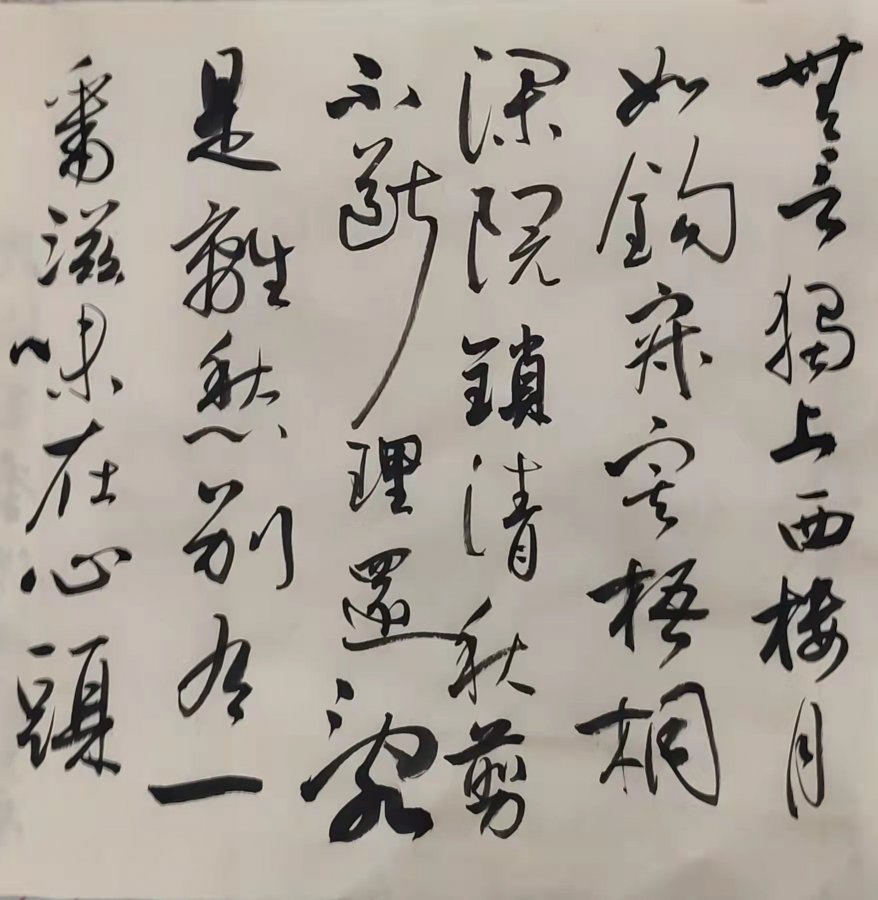 無言獨上西樓月
如鈎寂寞梧桐
深院鎖清秋剪
不斷理還亂
是離愁別有一
番滋味在心頭